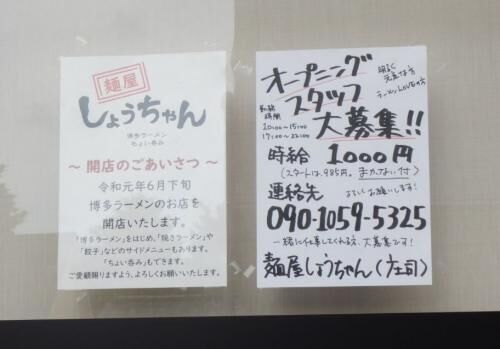 麺屋
しょうちゃん
博多ラーメン
ちょい呑み
～ 開店のごあいさつ ～
令和元年6月下旬
博多ラーメンのお店を
開店いたします。
「博多ラーメン」をはじめ、「焼きラーメン」や
「餃子」などのサイドメニューもあります。
「ちょい呑み」もできます。
ご愛顧賜りますよう、よろしくお願いいたします。
オープニング
スタッフ
大募集!!
明るく
元気な方
ラーメン好きの方
勤務
時間
10:00~15:00
17:00~22:00
時給 1000円
(スタートは985円。まかない付)
連絡先 よろしくお願いします!
090-1059-5325
一緒に仕事してくれる方、大募集です!
麺屋しょうちゃん(庄司)